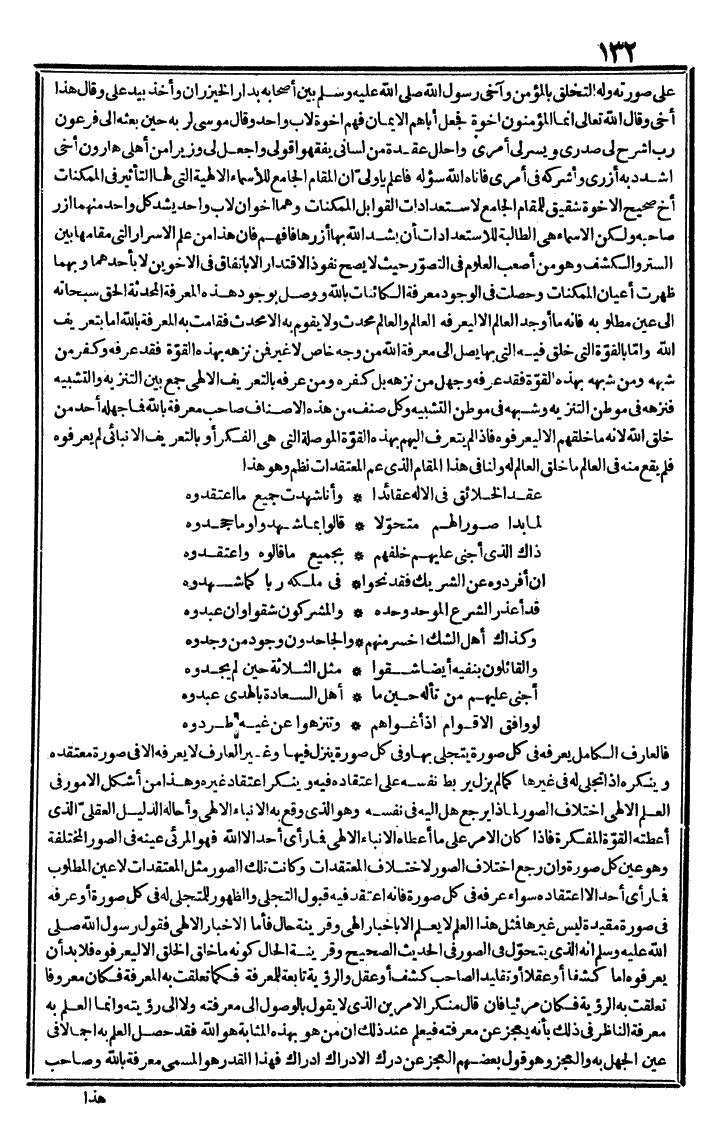 ١٣٢
على صورته وله التخلق بالمؤمن وآخى رسول الله صلى الله عليه وسلم بين أصحابه بدار الخيزران وأخذ بيد على وقال هذا
أخى وقال الله تعالى انما المؤمنون اخوة فجعل أباهم الايمان فهم اخوة لاب واحد وقال موسى لربه حين بعثه الى فرعون
رب اشرح لى صدرى ويسر لى أمرى واحلل عقدة من لسانى يفقهوا قولى واجعل لى وزيرا من أهلى هارون أخى
اشدد به أزرى وأشركه فى أمرى فآتاه الله سؤله فاعلم ياولىّ ان المقام الجامع للأسماء الالهية التى لها التأثير فى الممكنات
أخ صحيح الاخوة شقيق للمقام الجامع لاستعدادات القوابل الممكنات وهما اخوان لاب واحد يشد كل واحد منهما ازر
صاحبه ولكن الاسماء هى الطالبة للاستعدادات أن يشد الله بها أزرها فافهم فان هذا من علم الاسرار التى مقامها بين
الستر والكشف وهو من أصعب العلوم فى التصوّر حيث لا يصح نفوذ الاقتدار الا باتفاق فى الاخوين لا بأحدهما وبهما
ظهرت أعيان الممكنات وحصلت فى الوجود معرفة الكائنات بالله ووصل بوجود هذه المعرفة المحدثة الحق سبحانه
الى عين مطلوبه فانه ما أوجد العالم الا ليعرفه العالم والعالم محدث ولا يقوم به الا محدث فقامت به المعرفة بالله اما بتعريف
الله وامّا بالقوّة التى خلق فيه التى بها يصل الى معرفة الله من وجه خاص لا غير فن نزهه بهذه القوّة فقد عرفه وكفر من
شبهه ومن شبهه بهذه القوّة فقد عرفه وجهل من نزهه بل كفره ومن عرفه بالتعريف الالهى جمع بين التنزيه والتشبيه
فنزهه فى موطن التنزيه وشبهه فى موطن التشبيه وكل صنف من هذه الاصناف صاحب معرفة بالله فاجهله أحد من
خلق الله لانه ما خلقهم الا ليعرفوه فاذا لم يتعرف اليهم بهذه القوّة الموصلة التى هى الفكر أو بالتعريف الانبائى لم يعرفوه
فلم يقع منه فى العالم ما خلق العالم له ولنا فى هذا المقام الذى عم المعتقدات نظم وهو هذا
عقد الخلائق فى الاله عقائدا * وأنا شهدت جميع ما اعتقدوه
لما بدا صورا لهم متحوّلا * قالوا بما شهدوا وما جحدوه
ذاك الذى أجنى عليهم خلفهم * بجميع ما قالوه واعتقدوه
ان أفردوه عن الشريك فقد نحوا * فى ملكه ربا كما شهدوه
قد أعذر الشرع الموحد وحده * والمشركون شقوا وان عبدوه
وكذاك أهل الشك اخسر منهم * والجاحدون وجود من وجدوه
والقائلون بنفيه أيضا شقوا * مثل الثلاثة حين لم يجدوه
أجنى عليهم من تأله حين ما * أهل السعادة بالهدى عبدوه
لو وافق الاقوام اذ أغواهم * وتنزهوا عن غيه طردوه
فالعارف الكامل يعرفه فى كل صورة يتجلى بها وفى كل صورة ينزل فيها وغير العارف لا يعرفه الا فى صورة معتقده
وينكره اذا تجلى له فى غيرها كما لم يزل يربط نفسه على اعتقاده فيه وينكر اعتقاد غيره وهذا من أشكل الامور فى
العلم الالهى اختلاف الصور لماذا يرجع هل اليه فى نفسه وهو الذى وقع به الانباء الالهى وأحاله الدليل العقلىّ الذى
أعطته القوّة المفكرة فاذا كان الامر على ما أعطاه الانباء الالهى فارأى أحد الا الله فهو المرئى عينه فى الصور المختلفة
وهو عين كل صورة وان رجع اختلاف الصور لاختلاف المعتقدات وكانت تلك الصور مثل المعتقدات لا عين المطلوب
فارأى أحد الا اعتقاده سواء عرفه فى كل صورة فانه اعتقد فيه قبول التجلى والظهور للمتجلى له فى كل صورة أو عرفه
فى صورة مقيدة ليس غيرها فثل هذا العلم لا يعلم الا باخبار الهى وقرينة حال فأما الاخبار الالهى فقول رسول الله صلى
الله عليه وسلم انه الذى يتحوّل فى الصور فى الحديث الصحيح وقرينة الحال كونه ما خلق الخلق الا ليعرفوه فلابد أن
يعرفوه اما كشفا أو عقلا أو تقليدا لصاحب كشف أو عقل والرؤية تابعة للمعرفة فكما تعلقت به المعرفة فكان معروفا
تعلقت به الرؤية فكان مرئيا فان قال منكر الامرين الذى لا يقول بالوصول الى معرفته ولا الى رؤيته وانما العلم به
معرفة الناظر فى ذلك بأنه يعجز عن معرفته فيعلم عند ذلك ان من هو بهذه المثابة هو الله فقد حصل العلم به اجمالا فى
عين الجهل به والعجز وهو قول بعضهم العجز عن درك الادراك ادراك فهذا القدر هو المسمى معرفة بالله وصاحب
هذا